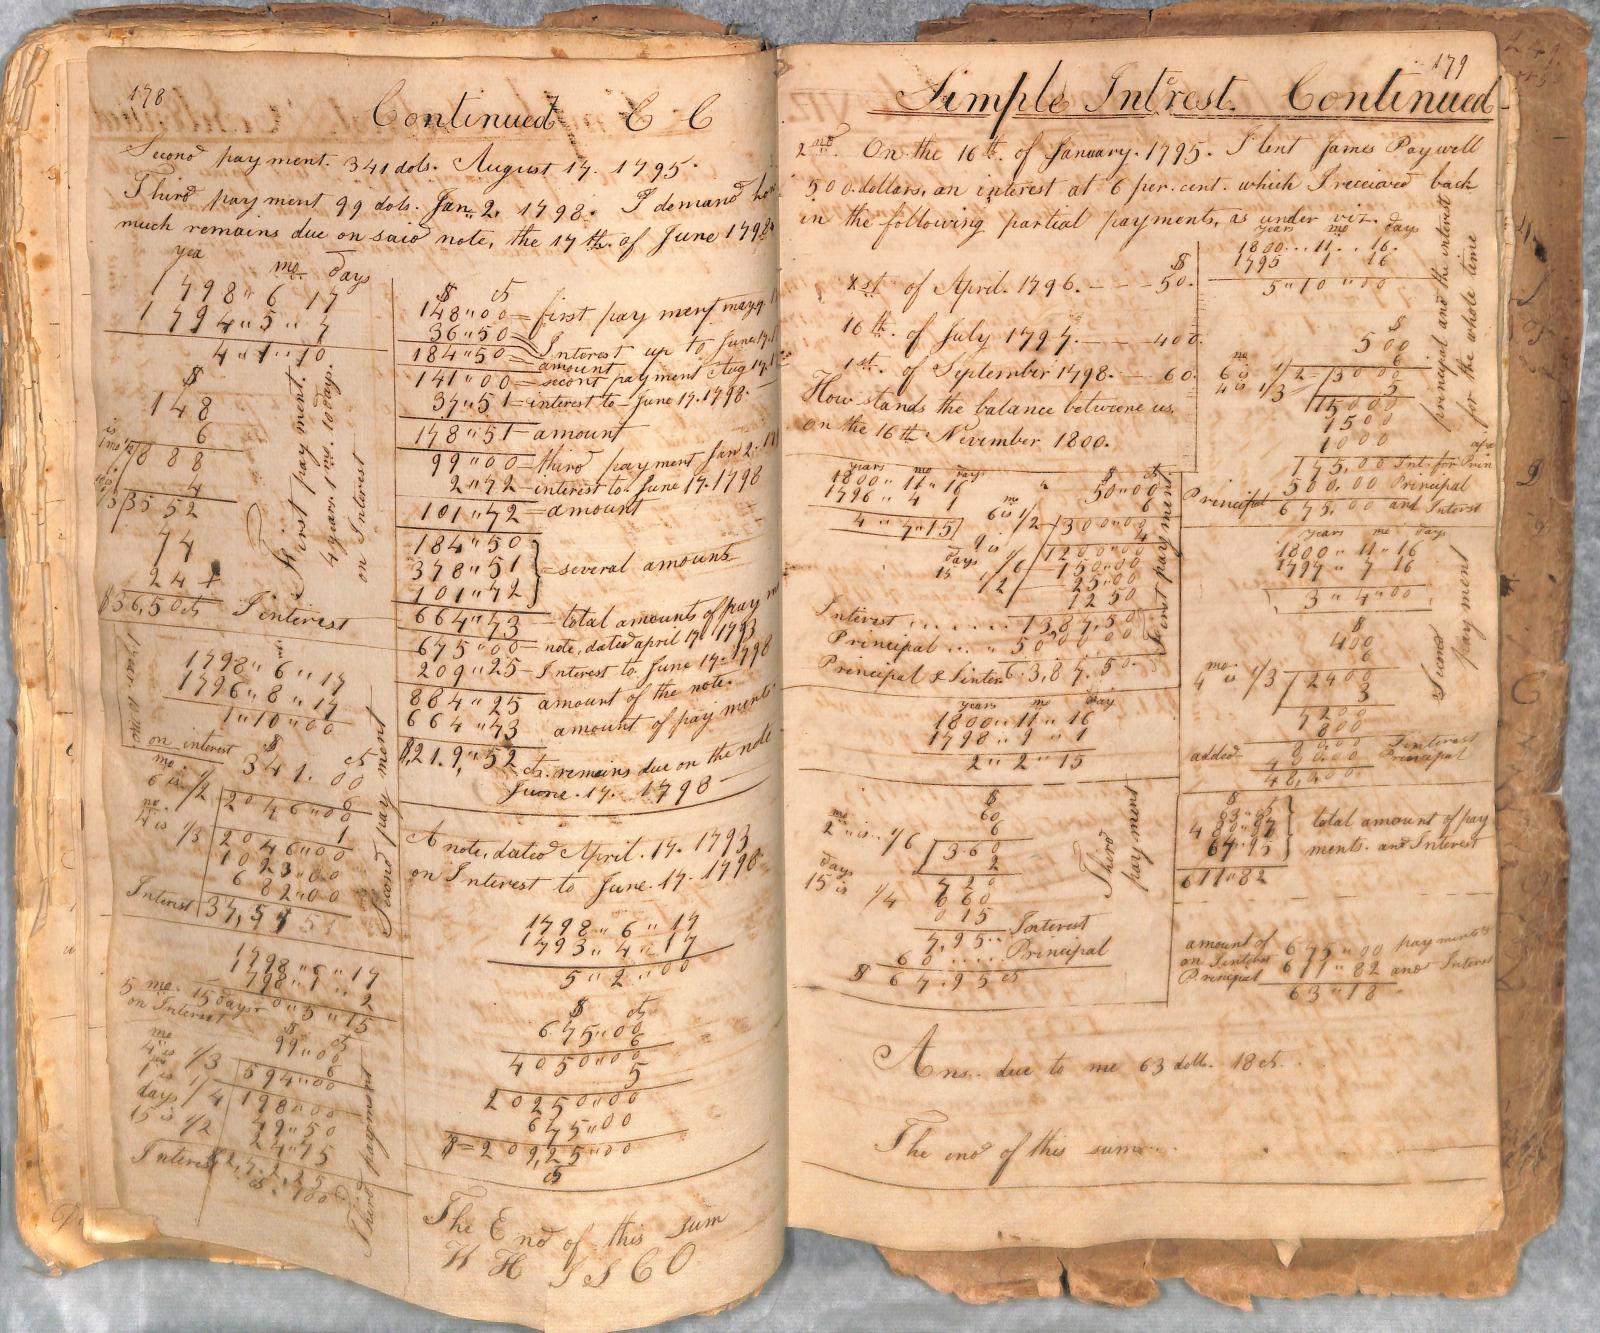 178
Continued C C
Second payment. 341 dols. August 17. 1795.
Third payment 99 dols. Jan. 2. 1798. I demand
much remains due on said note, the 17th. of June 1798
yea mo days
1798 " 6 " 17
1794 " 5 " 7
4 " 1 " 10
$
148
6
888
4
3552
74
24
$36,50 cts Interest
First payment.
4 years. 1 mo. 10 days.
on Interest
1798 " 6 " 17
1796 " 8 " 17
1 " 10 " 00
on interest $ cts
341. 00
mo.
6 is 1/2
2046"00
1
mo.
4 is 1/3
2046"00
1023"00
682"00
Interest 37,51
Second payment
1798 " 6 " 17
1798 " 1 " 2
0 " 5 " 15
5 mo. 15 days
on Interest
$ cts
99"00
6
mo
4 is 1/3
594"00
1 is 1/4
198"00
days
49"50
15 is 1/2
24"75
Interest
Third payment
$ cts
148"00 = first payment may 7
36"50 = Interest up to June 17.
184"50 = amount
141"00 = second payment Aug 17.
37"51 = interest to June 17. 1798
178"51 - amount
99"00 = third payment Jan 2.
2"72 - interest to June 17 1798
101"72 = amount
184"50
378"51 = several amounts
101"72
664"73 - total amounts of pay
675"00 - note, dated april 17. 1793
209"25 - Interest to June 17. 1798
884"25 amount of the note.
664"73 amount of payments
$219"52 cts. remains due on the note
June. 17. 1798
A note, dated April. 17. 1793
on Interest to June. 17. 1798
1798 " 6 " 17
1793 " 4 " 17
5 " 2 " 00
$ cts
675"00
6
4050"00
5
20250"00
675"00
$=209,25"00
cts
The End of this sum
179
Simple Interest. Continued
2nd. On the 16th. of January. 1795. I lent James Paywell
500 dollars, on interest at 6 per. cent. which I received back
in the following partial payments, as under viz.
$
1st of April. 1796. - - - 50.
16th. of July 1797. - - - 400.
1st. of September 1798. - 60.
How stands the balance betweene us.
on the 16th November 1800.
years mo days
1800 .. 11 .. 16.
1795 1 16
5 " 10 " 00
$
500
6
mo
6 is 1/2
3000
4 is 1/3
5
15000
1500
1000
175,00 Int. for Prin
500,00 Principal
Principal 675,00 and Interst
principal and the interest
for the whole time
years mo days
1800 " 11 " 16
1796 " 4 " 1
4 " 7 " 15
$ cts
50"00
6
mo
6 is 1/2
300"00
4
1200"00
1 is 1/6
150"00
days
25"00
15 1/2
12 50
Interest . . . . . . 1387,50
Principal . . . 50 00 00
Principal & Inter 6.387.50.
First payment
years mo day
1800 " 11 " 16
1798 " 9 " 1
2 " 2 " 15
$
60
6
mo
2 " is .. 1/6
360
2
days
720
15 is 1/4
60
015
7,95 .. Interest
60 .... Principal
$ 67.95 cts
Third
payment
years mo days
1800 " 11 " 16
1797 " 7 16
3 " 4 " 00
$
400
6
mo.
4 is 1/3
2400
3
7200
800
added 80,00 Interest
400,00 Principal
48,000
Second
payment
$
63"87
480"00
67"95
total amount of pay
ments. and Interest
611"82
amount of
on Interest
Principal
675"00 payments
611"82 and Interest
63"18
Ans. due to me 63 dolls. 18 cts.
The end of this sum